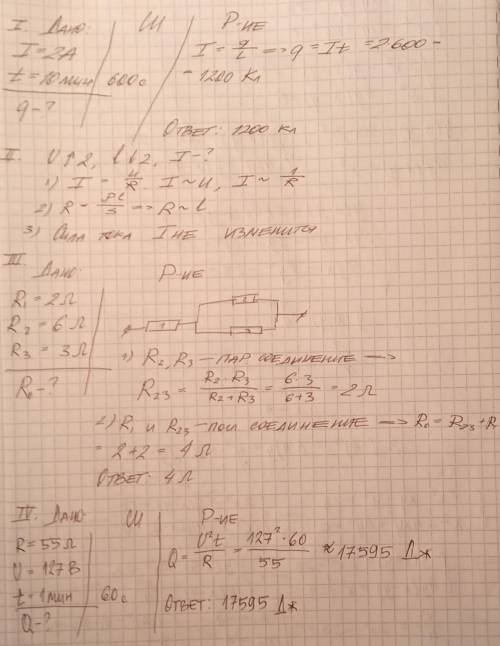 I. Дано: СИ Р-ие
I = 2А
t = 10 мин 600 с
q - ?
I = q/t => q = It = 2·600 =
= 1200 Кл
Ответ: 1200 Кл
II. U↑2, l↓2, I - ?
1) I = U/R. I ~ U, I ~ 1/R
2) R = ρl/S => R ~ l
3) Сила тока I не изменится
III Дано: Р-ие
R₁ = 2Ω
R₂ = 6Ω
R₃ = 3Ω
R₀ - ?
1 2 3
1) R₂, R₃ — пар соединение —>
R₂₃ = R₂·R₃/R₂+R₃ = 6·3/6+3 = 2Ω
2) R₁ и R₂₃ — посл соединение —> R₀ = R₂₃ + R
= 2+2 = 4Ω
Ответ: 4Ω
IV. Дано: СИ Р-ие
R = 55Ω
U = 127В
t = 1 мин 60 с
Q - ?
Q = U²t/R = 127²·60/55 ≈ 17595 Дж
Ответ: 17595 Дж